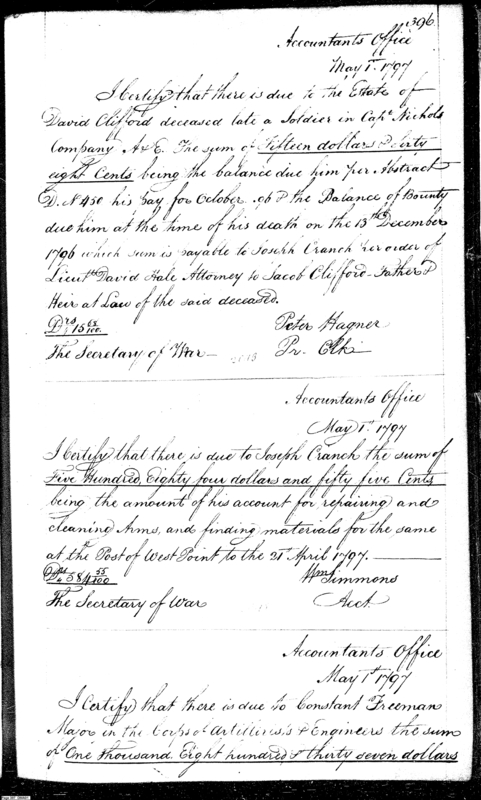 396
Accountants Office
May 1st. 1797
I Certify that there is due to the Estate of
David Clifford deceased late a Soldier in Capt. Nichols
Company A&E. The sum of Fifteen dollars &
eight Cents being the balance due him per Abstract
D. No 450 his pay for October 96 & the Balance of Bounty
due him at the time of his death on the 13th December
1796 which sum is payable to Joseph Cranch per order of
Lieutt. David Hale Attorney to Jacob Clifford Father &
Heir at Law of the said deceased.
Drs 15 68/100.
Peter Hagner
The Secretary of War
Pr. Clk
Accountants Office
May 1st. 1797
I Certify that there is due to Joseph Cranch the sum of
Five Hundred, Eighty four dollars and fifty five Cents
being the amount of his account for repairing and
cleaning Arms, and finding materials for the same
at the Post of West Point to the 21 April 1797.
Drs 584 55/100
Wm Simmons
The Secretary of War
Acct.
Accountants Office
May 1st 1797
I Certify that there is due to Constant Freeman
Major in the Corps of Artillerists & Engineers the sum
of One thousand Eight hundred & thirty seven dollars